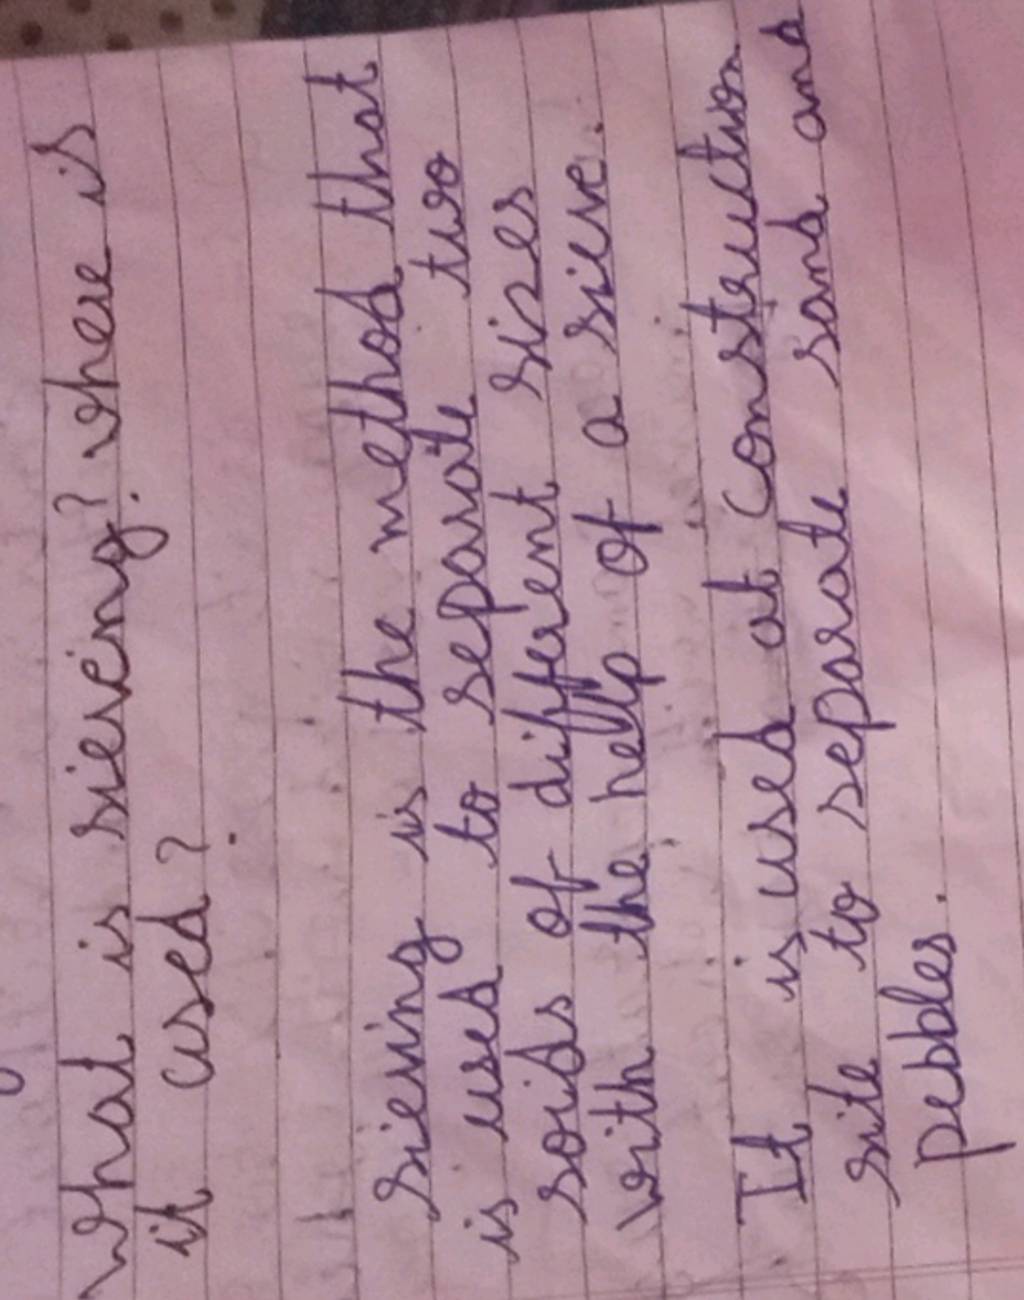 What is sieveing? where is
it used?
Sieving is the method that
is used to separate two
soids of different sizes
with the help of a sieve.
It is used at construction
site to separate sand and
pebbles.